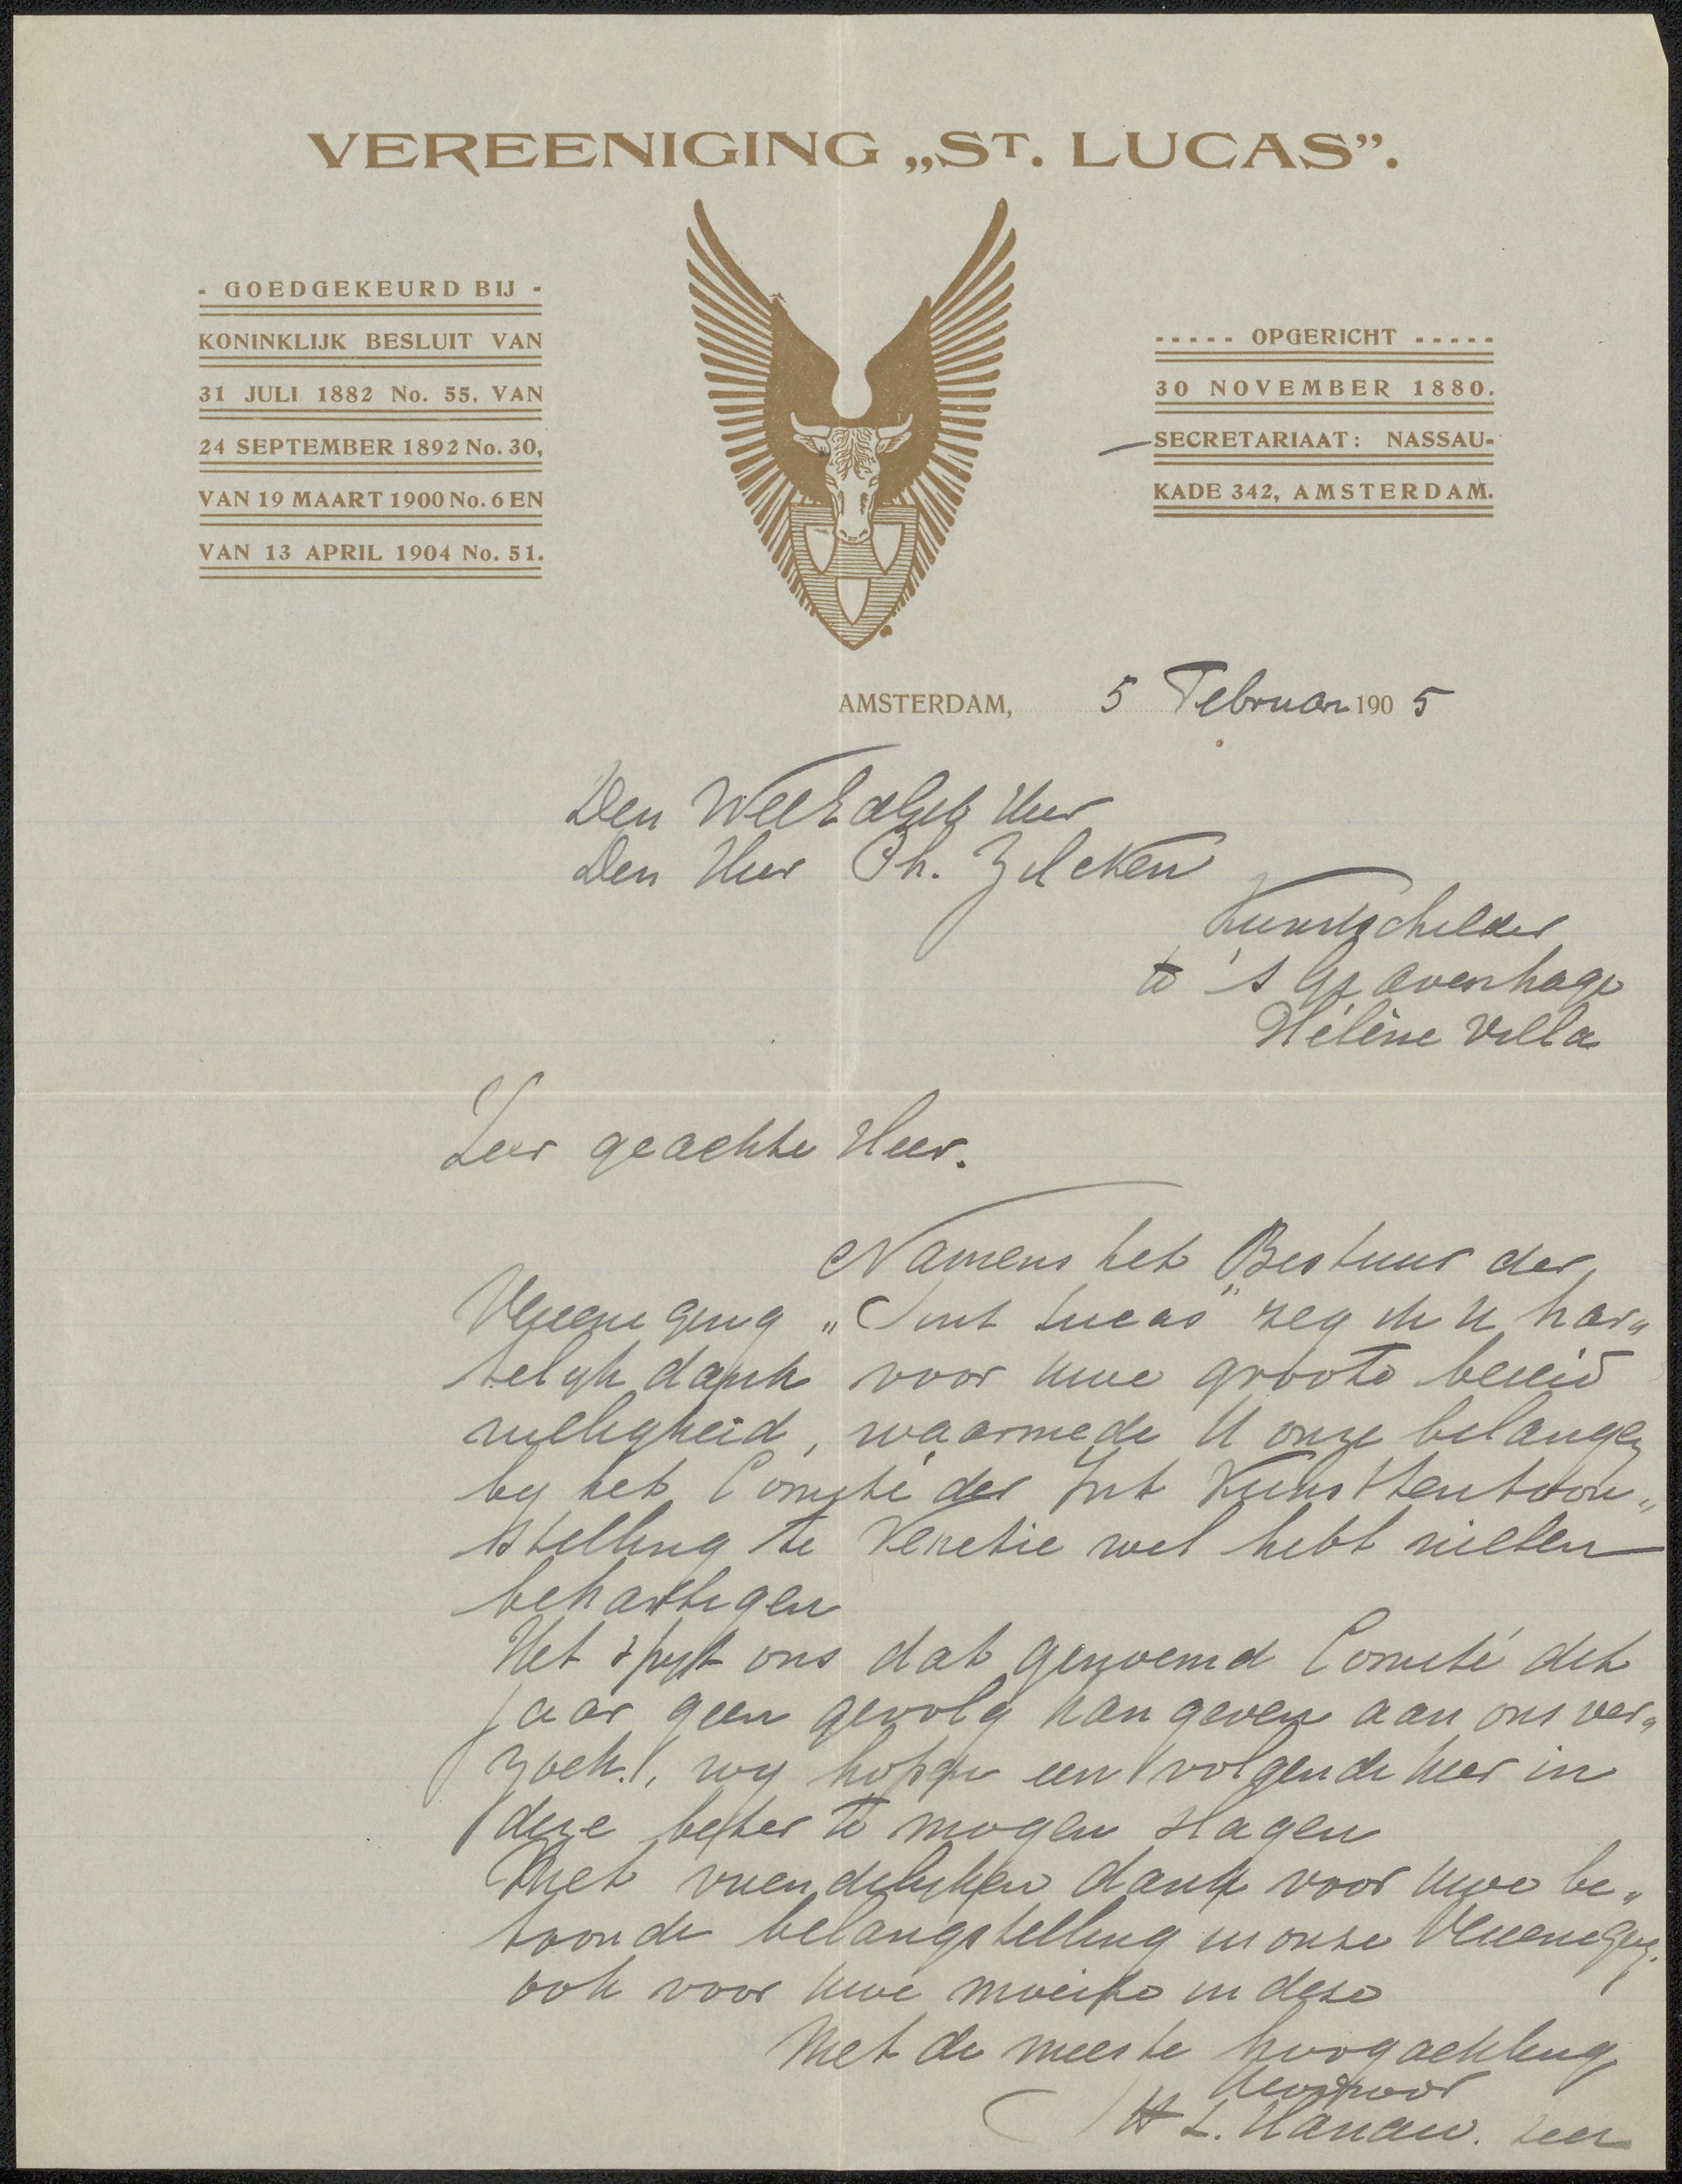 VEREENIGING „ST. LUCAS”.
- GOEDGEKEURD BIJ -
KONINKLIJK BESLUIT VAN
31 JULI 1882 No. 55, VAN
24 SEPTEMBER 1892 No. 30,
VAN 19 MAART 1900 No. 6 EN
VAN 13 APRIL 1904 No. 51.
----- OPGERICHT -----
30 NOVEMBER 1880.
SECRETARIAAT: NASSAU-
KADE 342, AMSTERDAM.
AMSTERDAM, 5 Februari 1905
Den WelEdlGeb Heer
Den Heer Ph. Zilcken
Kunstschilder
te 's Gravenhage
Hélène Villa
Zeer geachte Heer.
Namens het Bestuur der
Vereeniging „Sint Lucas" zeg ik U har„
telijk dank voor uwe groote bereid
willigheid, waarmede U onze belangen
by het Comité der Int Kunsttentoon„
stelling te Venetie wel hebt willen
behartigen
Het spijt ons dat genoemd Comité dit
jaar geen gevolg kan geven aan ons ver„
zoek!, wy hopen een volgende keer in
deze beter te mogen slagen
Met vriendelijken dank voor uwe be„
toonde belangstelling in onze Vereeniging.
ook voor uwe moeite in deze
Met de meeste hoogachting
H L. Hanau. secr